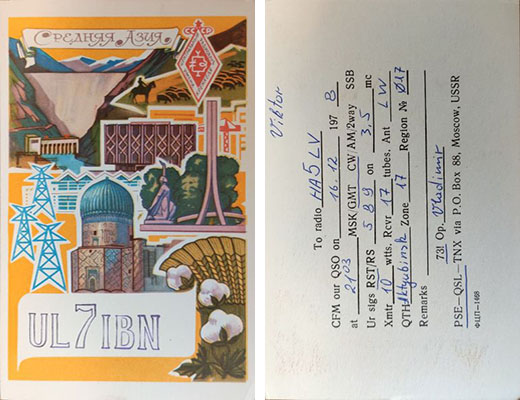 Средняя Азия
СССР
UL7IBN
Viktor
To radio HA5LV
CFM our QSO on 16.12 197 8
at 2103 MSK/GMT CW/AM/2way SSB
Ur sigs RST/RS 589 on 3,5 mc
Xmtr 10 wtts. Rcvr 17 tubes. Ant LW
QTH Aktyubinsk Zone 17 Region № 017
Remarks
73! Op. Vladimir
PSE—QSL—TNX via P.O. Box 88, Moscow, USSR